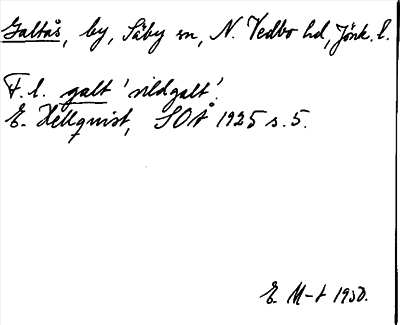 Galtås, by, Säby sn, N. Vedbo hd, Jönk. l.
F. l. galt 'vildgalt'.
E. Hellquist, SOÅ 1925 s. 5.
E. M-t 1950.